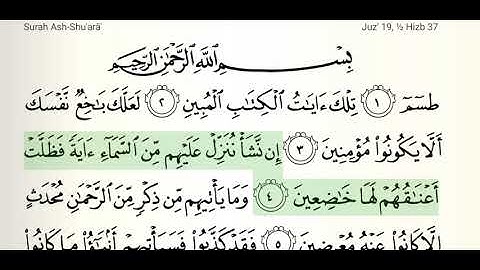 Surah Ash-Shu'arā'
Juz' 19, ½ Hizb 37
بِسْمِ ٱللَّهِ ٱلرَّحْمَٰنِ ٱلرَّحِيمِ
طسٓمٓ ١ تِلْكَ ءَايَٰتُ ٱلْكِتَٰبِ ٱلْمُبِينِ ٢ لَعَلَّكَ بَٰخِعٌ نَّفْسَكَ
أَلَّا يَكُونُوا۟ مُؤْمِنِينَ ٣ إِن نَّشَأْ نُنَزِّلْ عَلَيْهِم مِّنَ ٱلسَّمَآءِ ءَايَةً فَظَلَّتْ
أَعْنَٰقُهُمْ لَهَا خَٰضِعِينَ ٤ وَمَا يَأْتِيهِم مِّن ذِكْرٍ مِّنَ ٱلرَّحْمَٰنِ مُحْدَثٍ
إِلَّا كَانُوا۟ عَنْهُ مُعْرِضِينَ ٥ فَقَدْ كَذَّبُوا۟ فَسَيَأْتِيهِمْ أَنۢبَٰٓؤُا۟ مَا كَانُوا۟